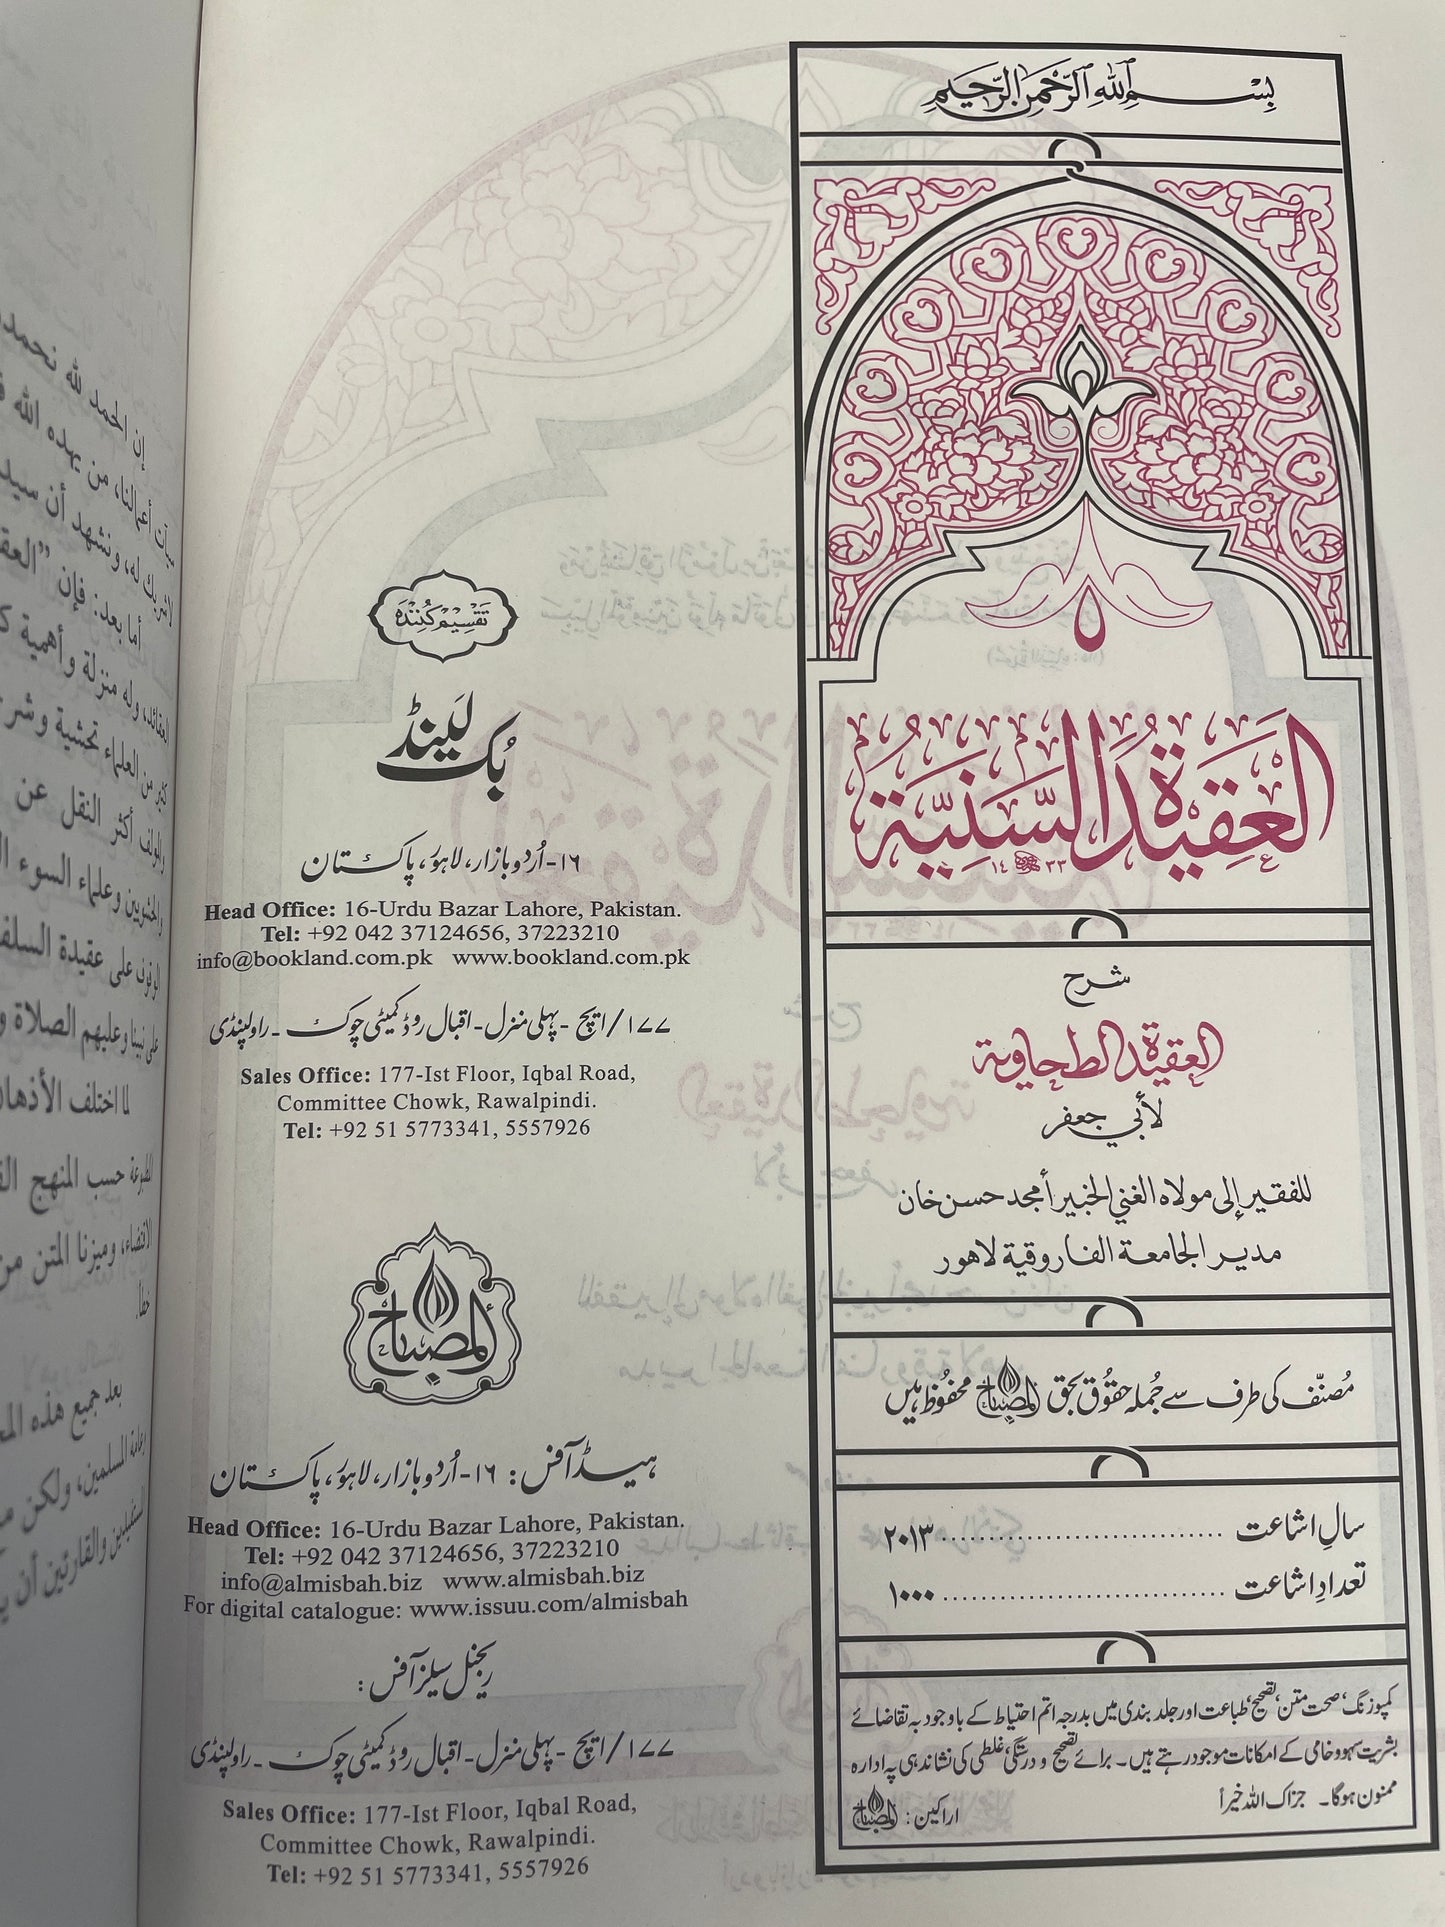 بسم الله الرحمن الرحيم
العَقِيدَةُ السَّنِيَّةُ
١٤٣٣
شرح
العقيدة الطحاوية
لأبي جعفر
للفقير إلى مولاه الغني الخبير أمجد حسن خان
مدير الجامعة الفاروقية لاهور
مُصنّف کی طرف سے جُملہ حقُوق بحق المصباح محفُوظ ہیں
سالِ اشاعت ........................ ۲۰۱۳
تعدادِ اشاعت ........................ ۱۰۰۰
کمپوزنگ، صحت متن، تصحیح، طباعت اور جلد بندی میں بدرجہ اتم احتیاط کے باوجود بہ تقاضائے
بشریت سہو و خامی کے امکانات موجود رہتے ہیں۔ برائے تصحیح و درستگی، غلطی کی نشاندہی پہ ادارہ
ممنون ہوگا۔ جزاک اللہ خیراً
اراکین: المصباح
تقسیم کُنندَہ
بُک لَینڈ
۱۶-اُردو بازار، لاہور، پاکستان
Head Office: 16-Urdu Bazar Lahore, Pakistan.
Tel: +92 042 37124656, 37223210
info@bookland.com.pk www.bookland.com.pk
۱۷۷/ایچ - پہلی منزل - اقبال روڈ کمیٹی چوک - راولپنڈی
Sales Office: 177-Ist Floor, Iqbal Road,
Committee Chowk, Rawalpindi.
Tel: +92 51 5773341, 5557926
المصباح
ہیڈ آفس: ۱۶-اُردو بازار، لاہور، پاکستان
Head Office: 16-Urdu Bazar Lahore, Pakistan.
Tel: +92 042 37124656, 37223210
info@almisbah.biz www.almisbah.biz
For digital catalogue: www.issuu.com/almisbah
ریجنل سیلز آفس:
۱۷۷/ایچ - پہلی منزل - اقبال روڈ کمیٹی چوک - راولپنڈی
Sales Office: 177-Ist Floor, Iqbal Road,
Committee Chowk, Rawalpindi.
Tel: +92 51 5773341, 5557926
إن الحمد لله نحمده
أعمالنا، من يهده الله
له، ونشهد أن
أما بعد: فإن "
وله منزلة وأهمية
من العلماء تحشية
أكثر النقل عن
وعلماء السوء
على عقيدة السلف
نبينا وعليهم الصلاة
لما اختلف الأذهان
حسب المنهج
وميزنا المتن من
خطأ.
بعد جميع هذه
المسلمين، ولكن
والقارئين أن